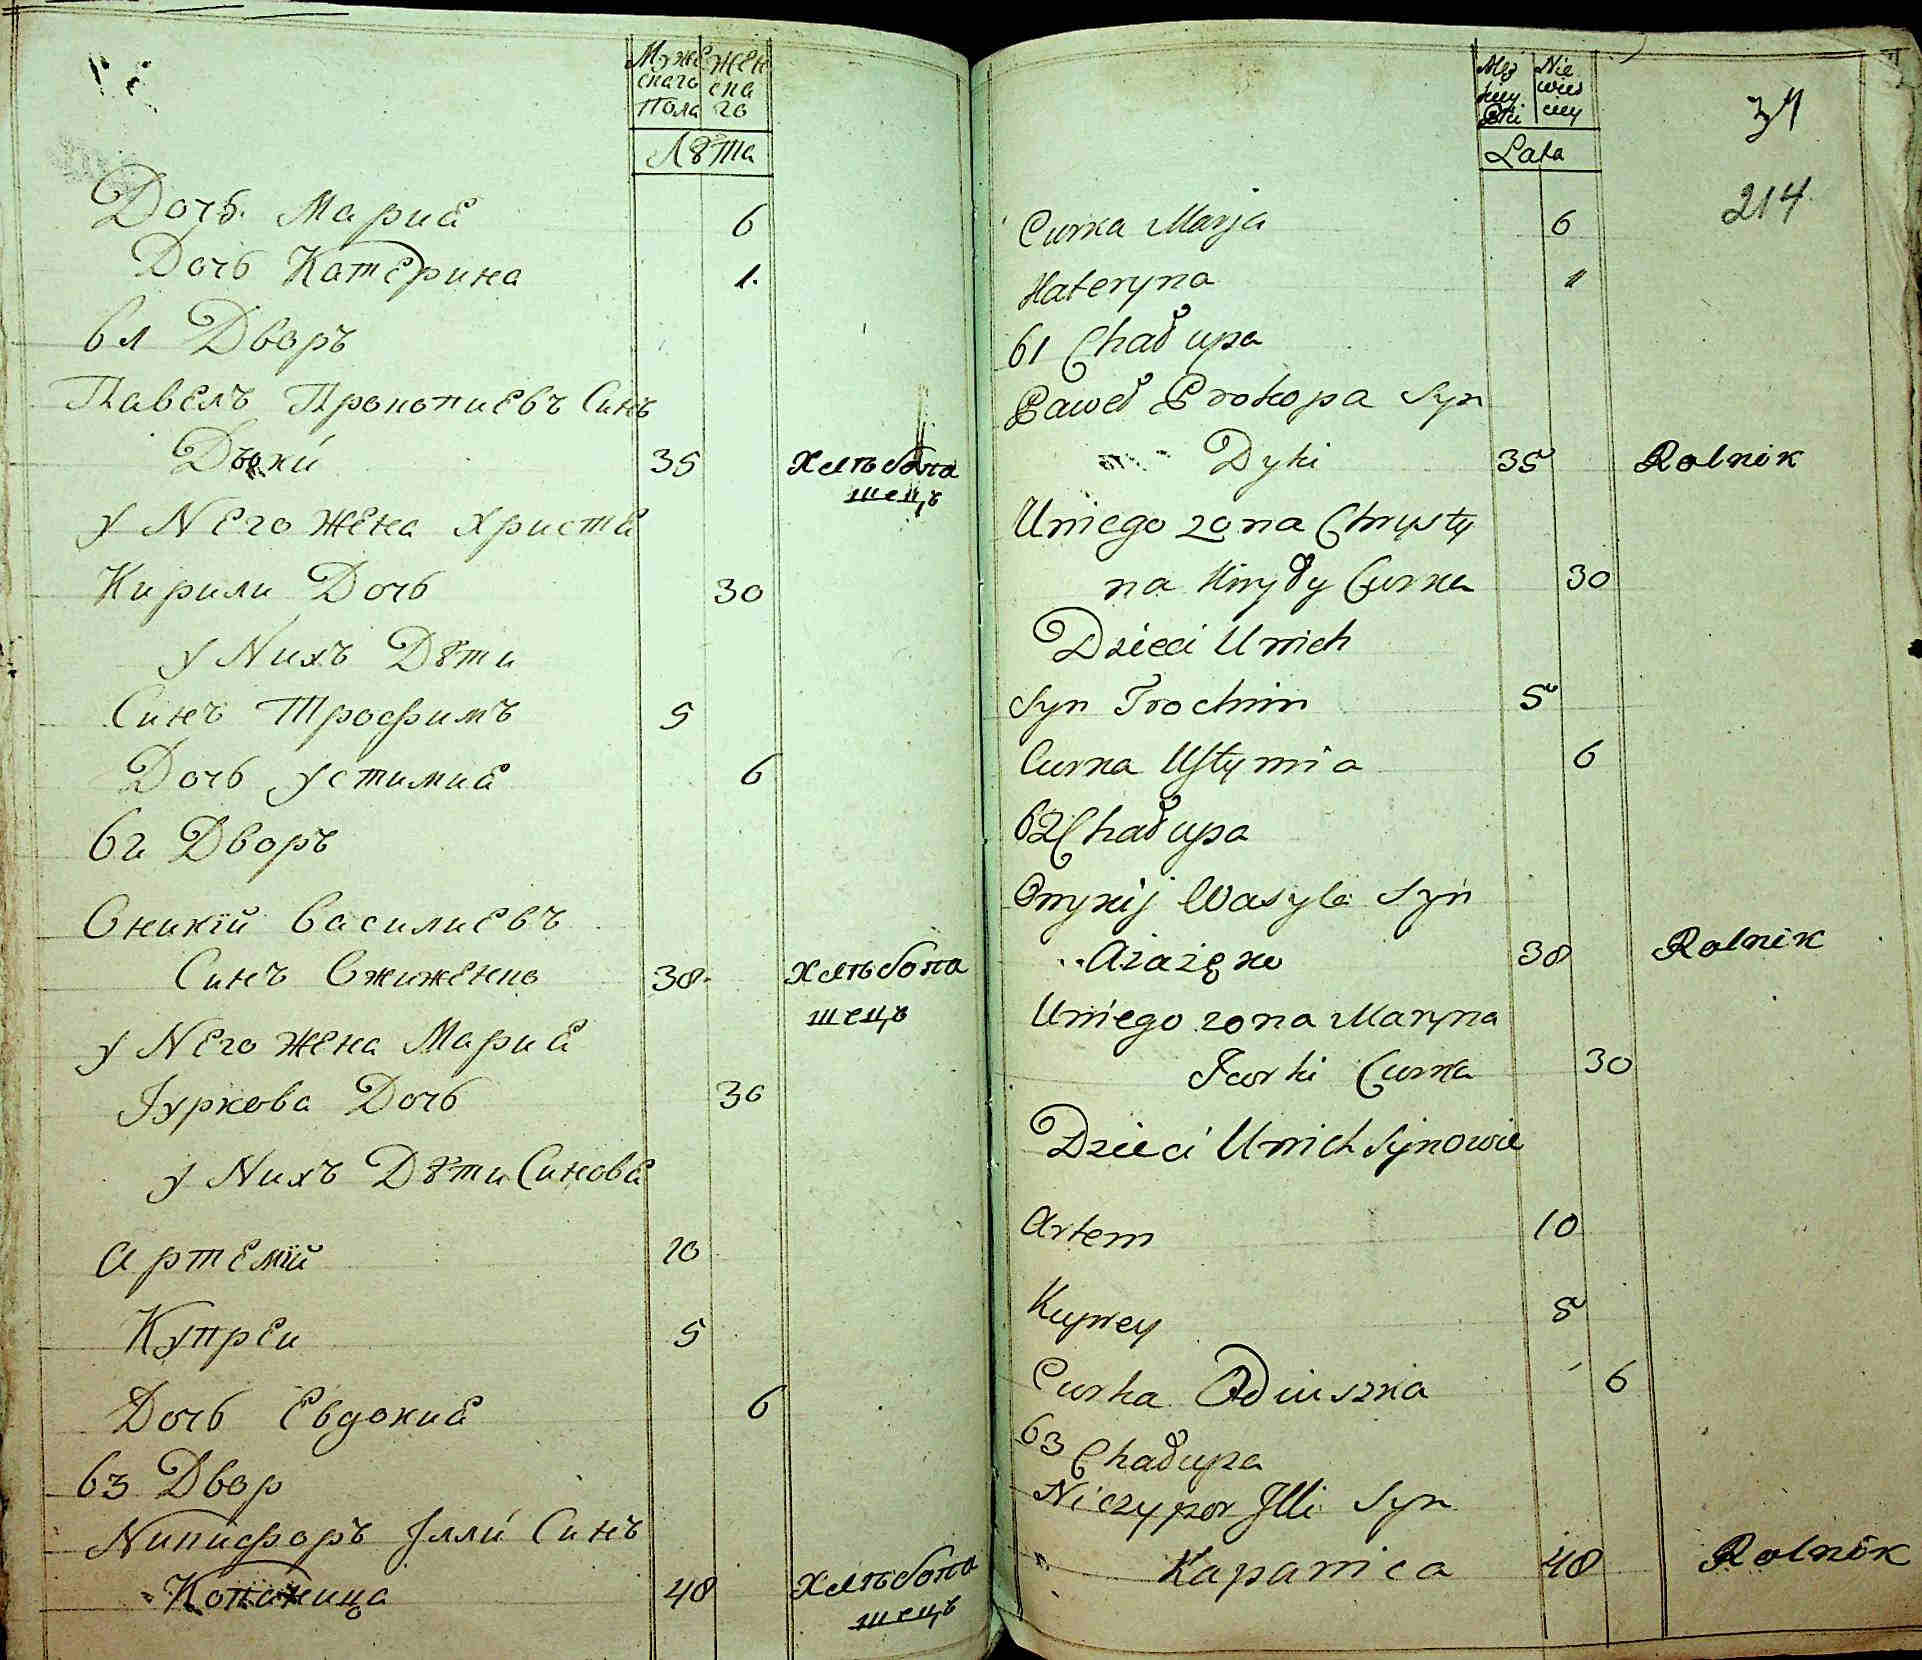 Муже Жен
скаго ска
Пола го
Лѣта
Дочь Мариѣ 6
Дочь Катерина 1.
61 Дворъ
Павелъ Прокопиевъ Синъ
Дыкий 35 Хлѣбопа
шецъ
у Него Жена Христѣ
Кирили Дочь 30
у Нихъ Дѣти
Синъ Трофимъ 5
Дочь Устимиѣ 6
62 Дворъ
Оникій Василиевъ
Синъ Ожиженко 38. Хлѣбопа
шецъ
у Него Жена Мариѣ
Юркова Дочь 30
у Нихъ Дѣти Синовѣ
Артемій 10
Купреи 5
Дочь Евдокиѣ 6
63 Двор
Никифоръ Iлли Синъ
Копаница 48 Хлѣбопа
шецъ
Lata
31
214
Curka Marja 6
Kateryna 1
61 Chałupa
Paweł Prokopa Syn
Dyki 35 Rolnik
Uniego zona Chrysty
na Kiryły Curka 30
Dzieci Unich
Syn Trochim 5
Curka Ustymia 6
62 Chałupa
Onykij Wasyla Syn
38 Rolnik
Uniego zona Maryna
Jurki Curka 30
Dzieci Unich Synowie
Artem 10
Kuprey 5
Curka Odiuszka 6
63 Chałupa
Niczypor Jlli Syn
Kapanica 48 Rolnik